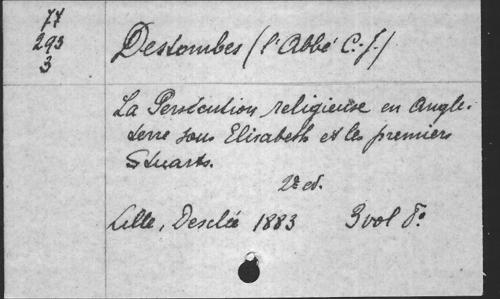 77
293
3
Destombes (l'Abbé C.-J.)
La Persécution religieuse en Angle-
terre sous Elisabeth et les premiers
Stuarts.
2e ed.
Lille, Desclée 1883 3 vol 8o.